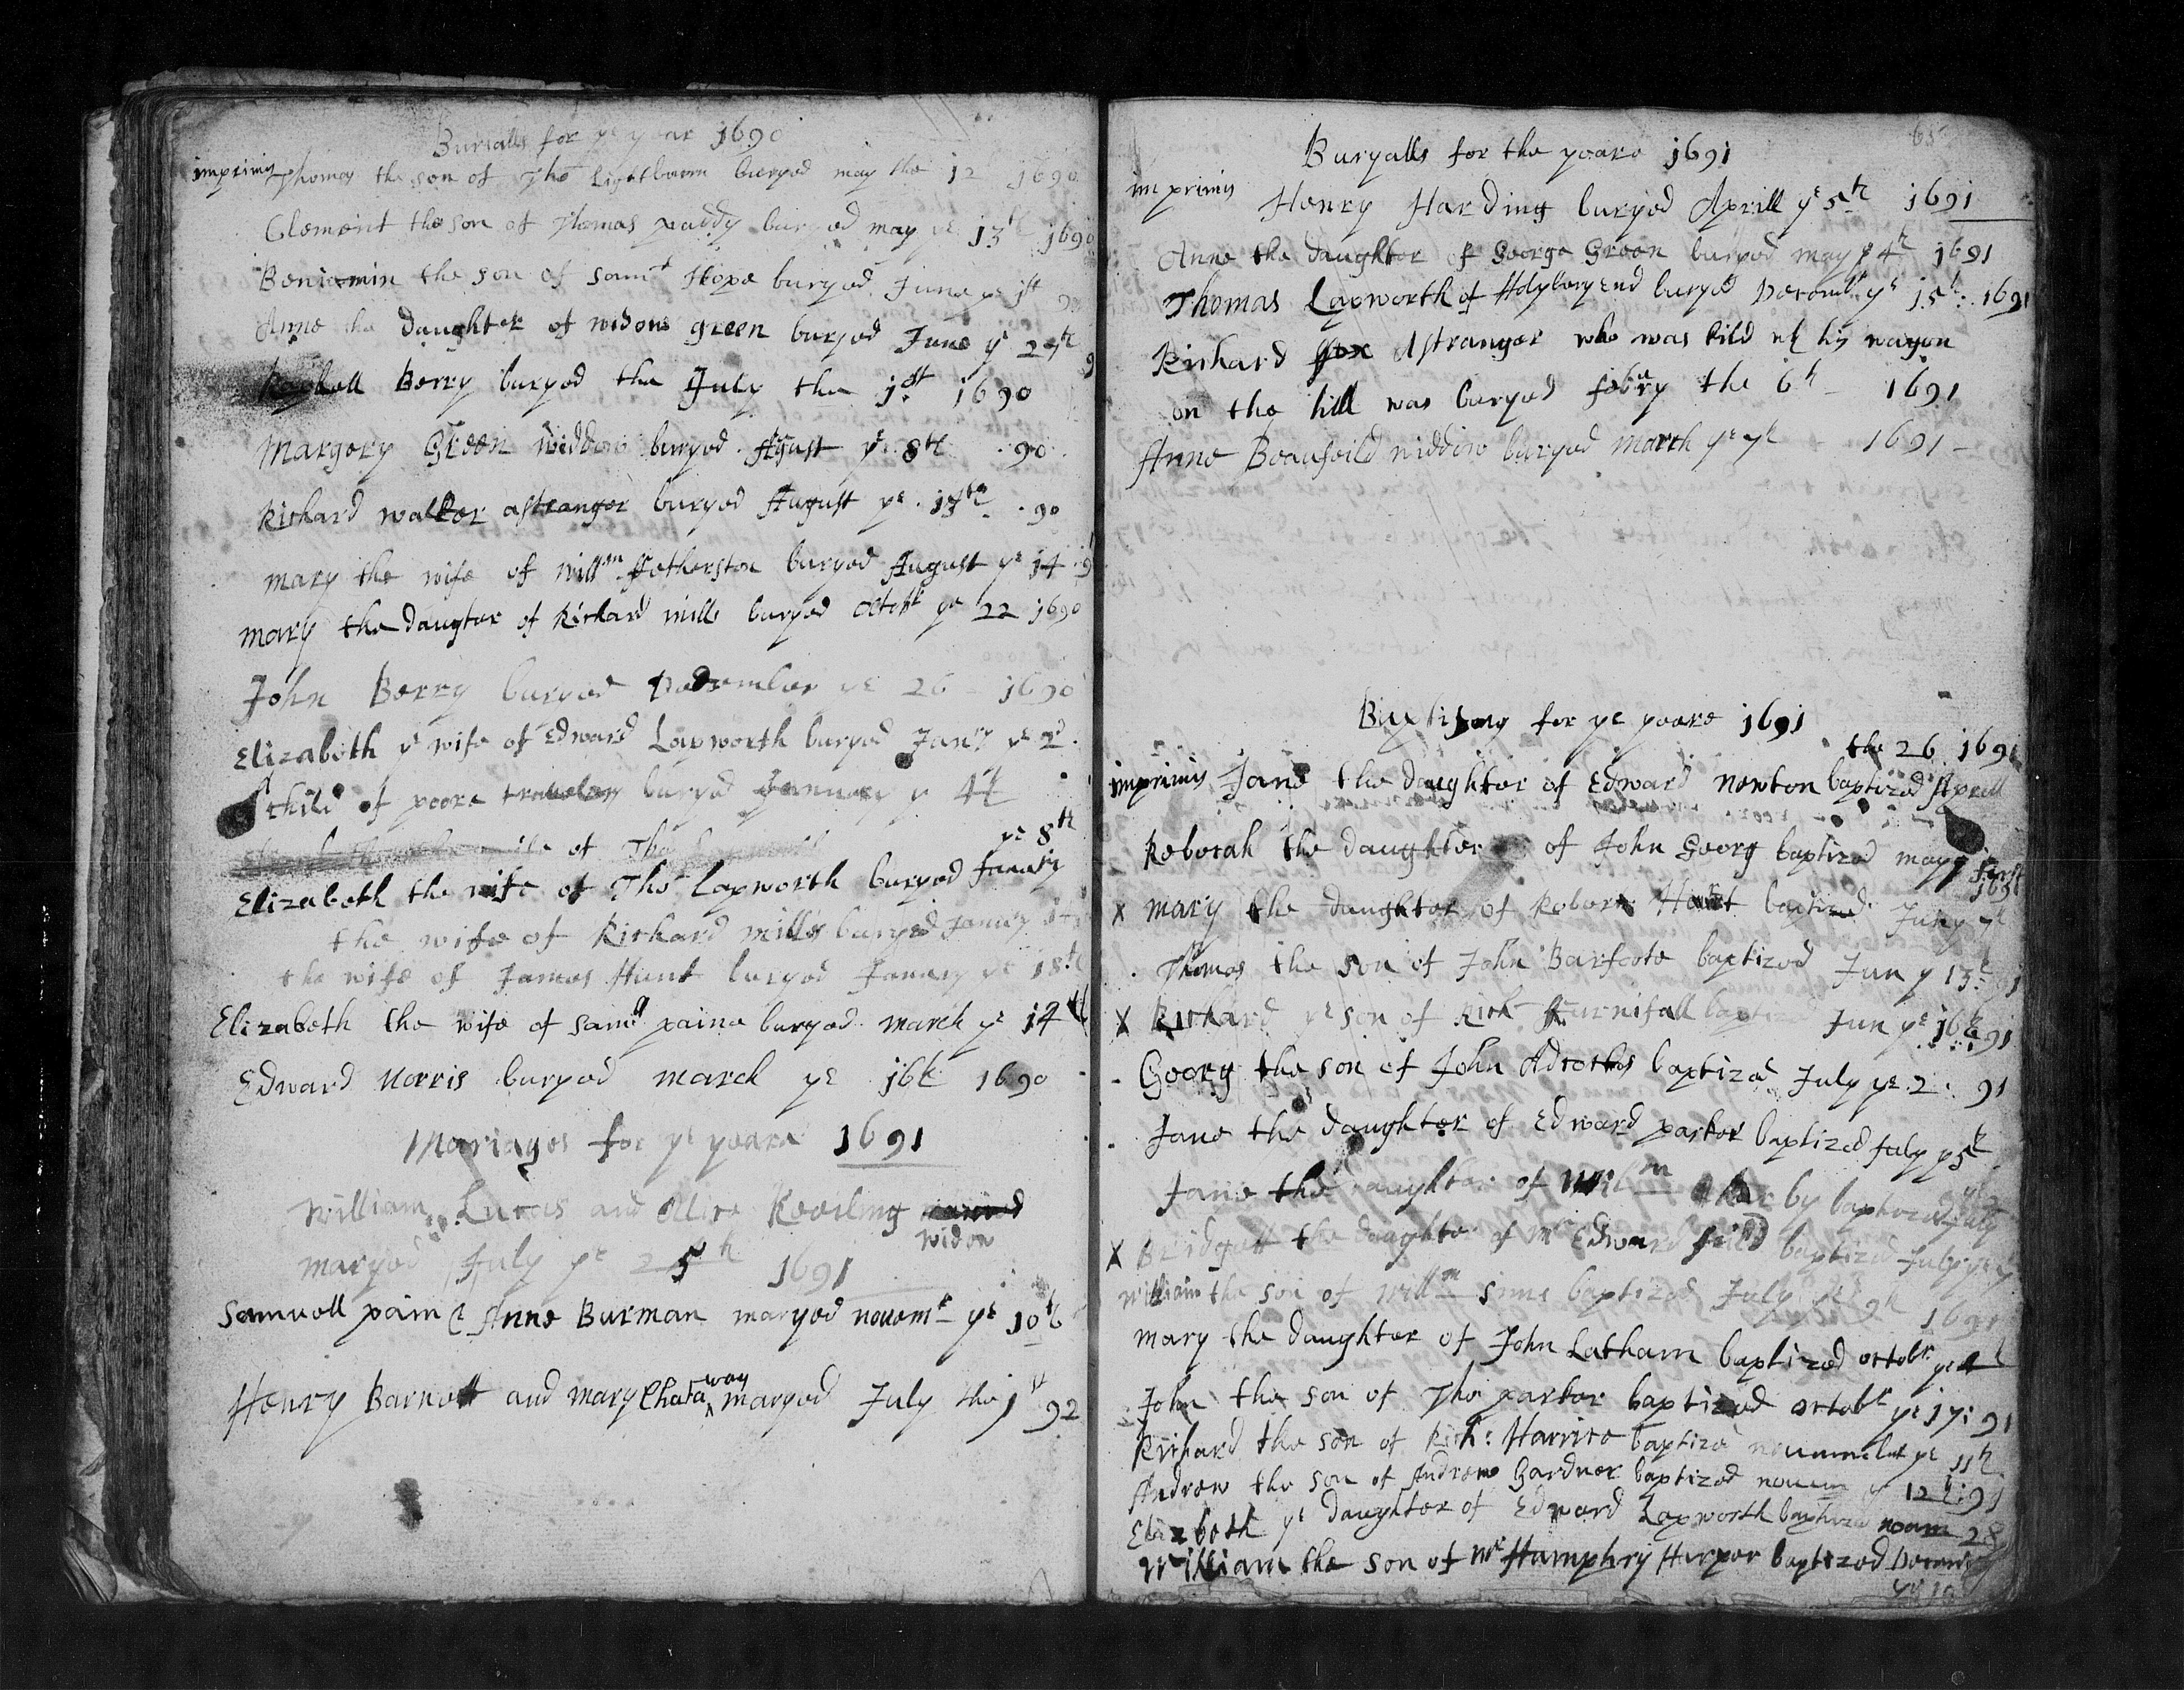 Burialls for ye year 1690
imprimis Thomas the son of Tho Lightbourn buryed may the 12 1690
Clement the son of Thomas paddy buryed may ye 13th 1690
Beniamin the son of Saml Hope buryed June ye 1st 90
Anne the daughter of widow green buryed June ye
Berry buryed the July the 1st 1690
Margery Green widdow buryed Agust ye 8th 90
Richard walker a stranger buryed August ye 13th 90
mary the wife of willm ffetherston buryed August ye 14 9
mary the daugter of Richard mills buryed Octobr ye 22 1690
John Berry buryed December ye 26 1690
Elizabeth ye wife of Edward Lapworth buryed Janry ye 2d
A child of poore buryed January ye 4th
wife of Tho
ye 8th
Elizabeth the wife of Tho Lapworth buryed Janury
the wife of Richard mills buryed Janury
the wife of James Hunt buryed Janury ye 18th
Elizabeth the wife of Samll paine buryed march ye 14th
Edward Norris buryed march ye 16th 1690
Mariages for ye yeare 1691
William Lucas and Alice Keeling
widow
maryed July ye 25th 1691
Samuell pain & Anne Burman maryed novemr ye 10th
Henry Barnett and mary Chataway maryed July the 1st 92
65
Buryalls for the yeare 1691
imprimis Henry Harding buryed Aprill ye 5th 1691
Anne the daughter of George Green buryed may ye 4th 1691
Thomas Lapworth of Holyberyend buryed Decembr ye 15th 1691
Richard A stranger who was kild wth his wagon
on the hill was buryed febury the 6th 1691
Anne Beaufeild widdow buryed march ye 7th 1691
Baptisms for ye yeare 1691
the 26 1691
imprimis Jane the daughter of Edward Newton baptized Aprell
Reborah the daughter of John Georg baptized may ye first
1691
x mary the daughter of Robert Hunt baptized
Thomas the son of John Barfoote baptized Jun ye 13th
x Richard ye son of Rich ffurnifall baptized Jun ye 16th 91
Georg the son of John Adcocks baptized July ye 2: 91
Jane the daughter of Edward parker baptized July ye 5th
Jane the daughter of Willm baptized July
x Bridgett the daughter of mr Edward feild baptized July
William the son of Willm Sims baptized July ye 9th 1691
mary the daughter of John Latham baptized octobr
John the son of Tho parker baptized octobr ye 17: 91
Richard the son of Rich: Harrise baptized ye 11th
Andrew the son of Andrew Gardner baptized novem ye 12th: 91
Elizbeth ye daughter of Edward Lapworth baptized novm 28
William the son of mr Humphry Harper baptized